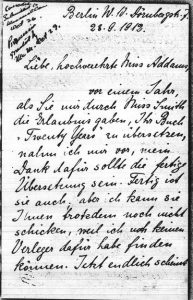 Berlin W.
28.9.1913.
Liebe, hochverehrte Miss Addams,
vor einem Jahr,
als Sie mir durch Miss Smith
die Erlaubnis gaben, Ihr Buch
„Twenty Years" zu übersetzen,
nahm ich mir vor, mein
Dank dafür sollte die fertige
Übersetzung sein. Fertig ist
sie auch, aber ich kann sie
Ihnen trotzdem noch nicht
schicken, weil ich noch keinen
Verleger dafür habe finden
können. Jetzt endlich scheint